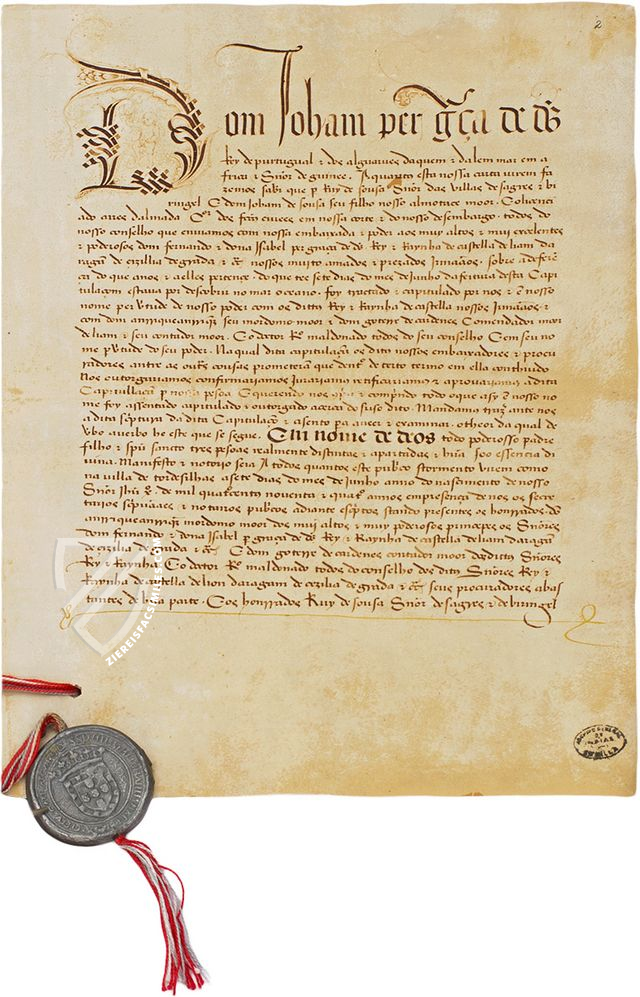 2
Dom Joham per gr̃ça de ds̃
Rey de purtugual & dos alguarues daquem & dalem mar em a
frica & Snõr de guinee . A quantos esta nossa carta virem fa
zemos saber que p Ruy de sousa Snõr das villas de sagres & bi
ringel E dom Joham de sousa seu filho nosso almotace moor . E o licenci
ado aires dalmada em nossa corte & do nosso desembargo . todos do
nosso conselho que enviamos com nossa embaixada & poder aos muy altos & muy excelentes
& poderosos dom fernando & dona Isabel per graça de ds̃ Rey & Raynha de castella de liam da
ragam de cizilia de grada & nossos muito amados & prezados Irmaãos . sobre a deferẽ
ça do que a nos & a elles pertence . do que tee sete dias do mes de Junho da feitura desta Capi
tulaçam estava por descobrir no mar oceano . foy trauctado & capitulado por nos & em nosso
nome per vertude de nosso poder com os dittos Rey & Raynha de castella nossos Irmaãos &
com dom anrrique anrriquez seu mordomo moor & dom goterre de cardenes Comendador moor
de liam & seu contador moor . E o doctor Rº maldonado todos do seu conselho E em seu no
me p vertude do seu poder . Na qual dita capitulaçã os dito nossos embaixadores & procu
radores antre as outras cousas prometeram que dentro de certo termo em ella conthiudo
Nos outorguariamos confirmariamos Jurariamos retificariamos & aprovariamos a dita
Capitullaçã p nossa pesoa E querendo nos & comprindo todo o que asy em nosso no
me foy assentado capitulado & outorgado acerca do suso dito . Mandamos trazer ante nos
a dita scriptura da dita Capitulaçã & asento pa a veer & examinar . o theor da qual de
vbo a verbo he este que se segue . Em nome de deos todo poderoso padre
filho & spũ sancto tres pesoas realmente distintas & apartadas & hũa soo essencia di
vina . Manifesto & notorio seja A todos quantos este publico stormento virem como
na villa de tordesilhas a sete dias do mes de Junho anno do nascimento de nosso
Snõr Ihũ xº . de mil quatrocentos noventa & quatro annos em presença de nos os secre
tarios & notarios publicos adiante escriptos stando presentes os honrrados dõ
anrrique anrriquez mordomo moor dos mui altos & muy poderosos principes os Snõres
dom fernando & dona Isabel p graça de ds̃ Rey & Raynha de castella de liam daragam
de cizilia de grada & E dom goterre de cardenes contador moor dos dittos Snõres
Rey & Raynha E o doctor Rº maldonado todos do conselho dos dittos Snõres Rey &
Raynha de castella de lion daragam de cezilia de grada & seus procuradores abas
tantes de hũa parte . E os honrrados Ruy de sousa Snõr de sagres & de biringel
ZIEREISFACSIMILES.COM
ARCHIVO GENERAL
DE
INDIAS
SEVILLA